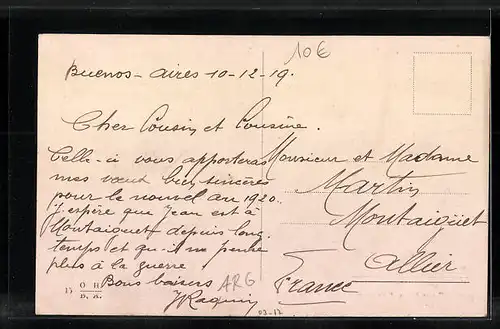 10€
Buenos-aires 10-12-19.
Cher Cousin et Cousine.
Celle-ci vous apporteras
mes vœux bien sincères
pour le nouvel an 1920..
J'espère que Jean est à
Montaiguet depuis long
temps et qu'il ne pense
plus à la guerre
Bons baisers
Monsieur et Madame
Martin
Montaiguet
Allier
France
ARG